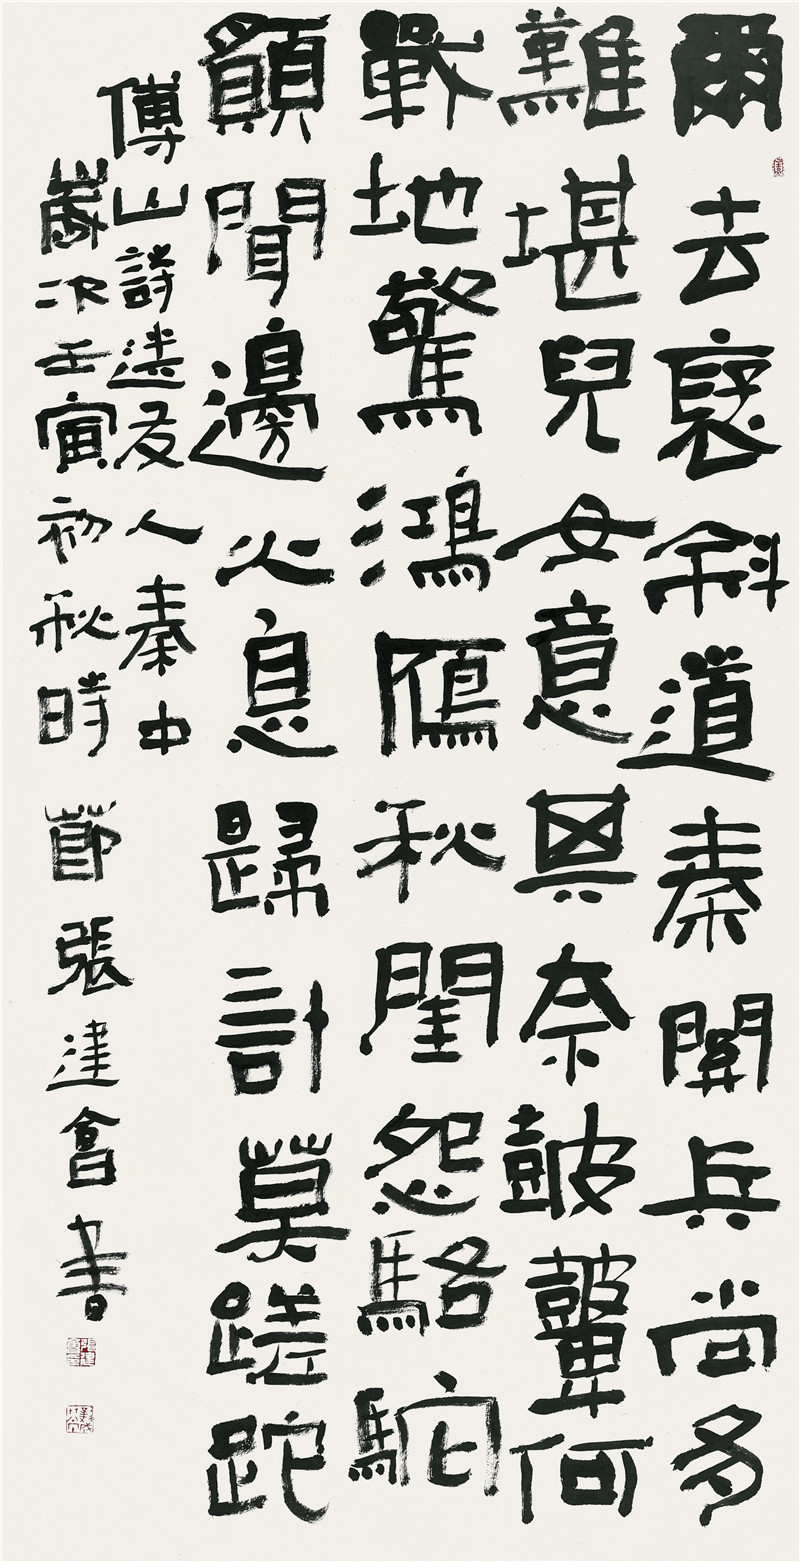 爾去褒斜道秦關兵尚多
難堪兒女意其奈鼓鼙何
戰地驚鴻鴈秋閨怨駱駝
願聞邊火息歸計莫蹉跎
傅山詩送友人秦中
歲次壬寅初秋時節張建會書